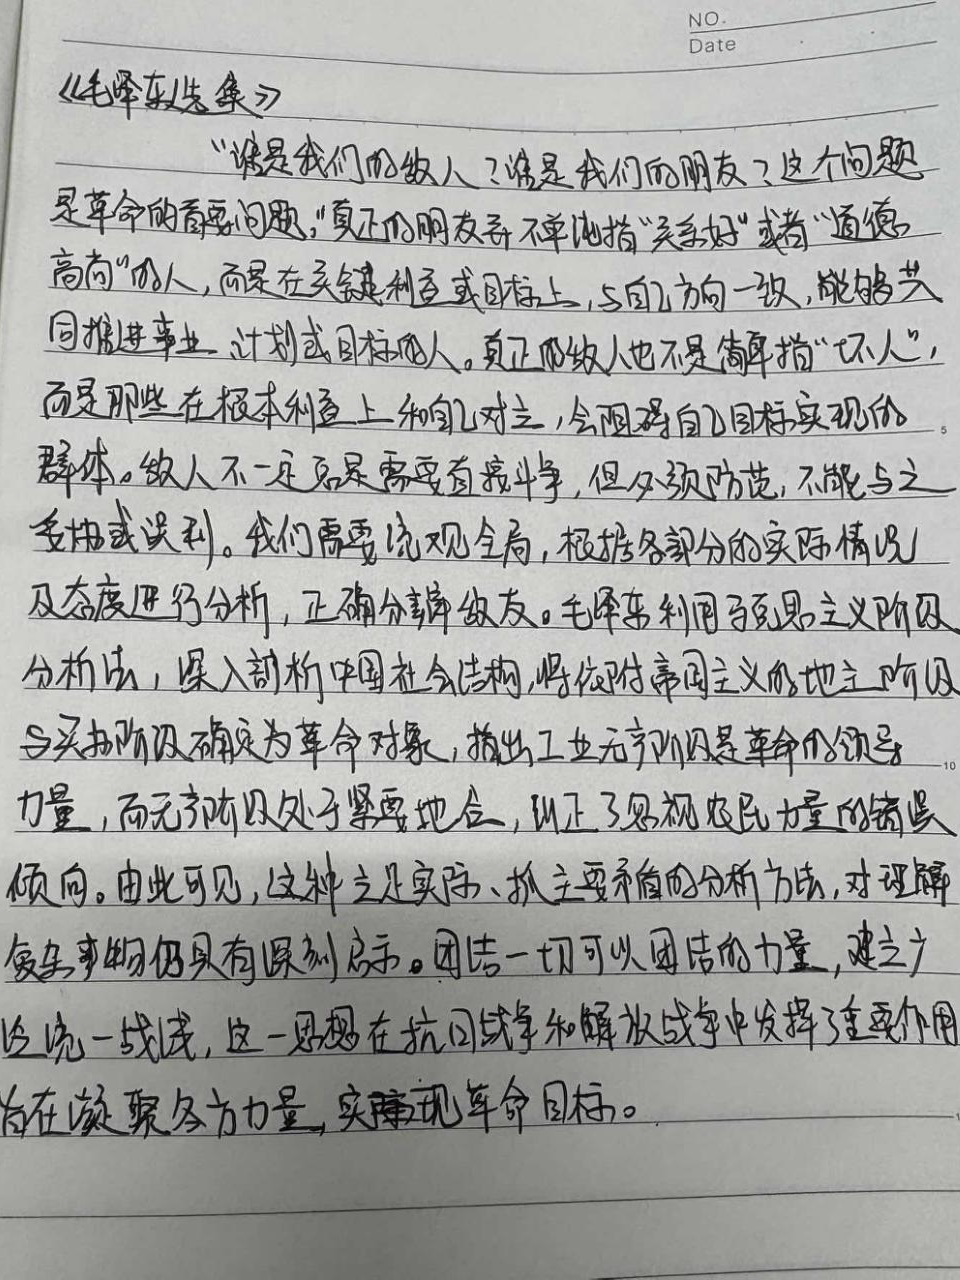 NO.
Date
《毛泽东选集》
“谁是我们的敌人？谁是我们的朋友？这个问题
是革命的首要问题,”真正的朋友并不单纯指“关系好”或者“道德
高尚”的人，而是在关键利益或目标上，与自己方向一致，能够共
同推进事业、计划或目标的人。真正的敌人也不是简单指“坏人”，
而是那些在根本利益上和自己对立，会阻碍自己目标实现的
群体。敌人不一定总是需要直接斗争，但必须防范，不能与之
或误判。我们需要统观全局，根据各部分的实际情况
及态度进行分析，正确分辨敌友。毛泽东利用马克思主义阶级
分析法，深入剖析中国社会结构，将依附帝国主义的地主阶级
与买办阶级确定为革命对象，指出工业无产阶级是革命的领导
力量，而无产阶级处于紧要地位，纠正了忽视农民力量的错误
倾向。由此可见，这种立足实际、抓主要矛盾的分析方法，对理解
复杂事物仍具有深刻启示。团结一切可以团结的力量，建立广
泛统一战线，这一思想在抗日战争和解放战争中发挥了重要作用
旨在凝聚各方力量，实现革命目标。
5
10